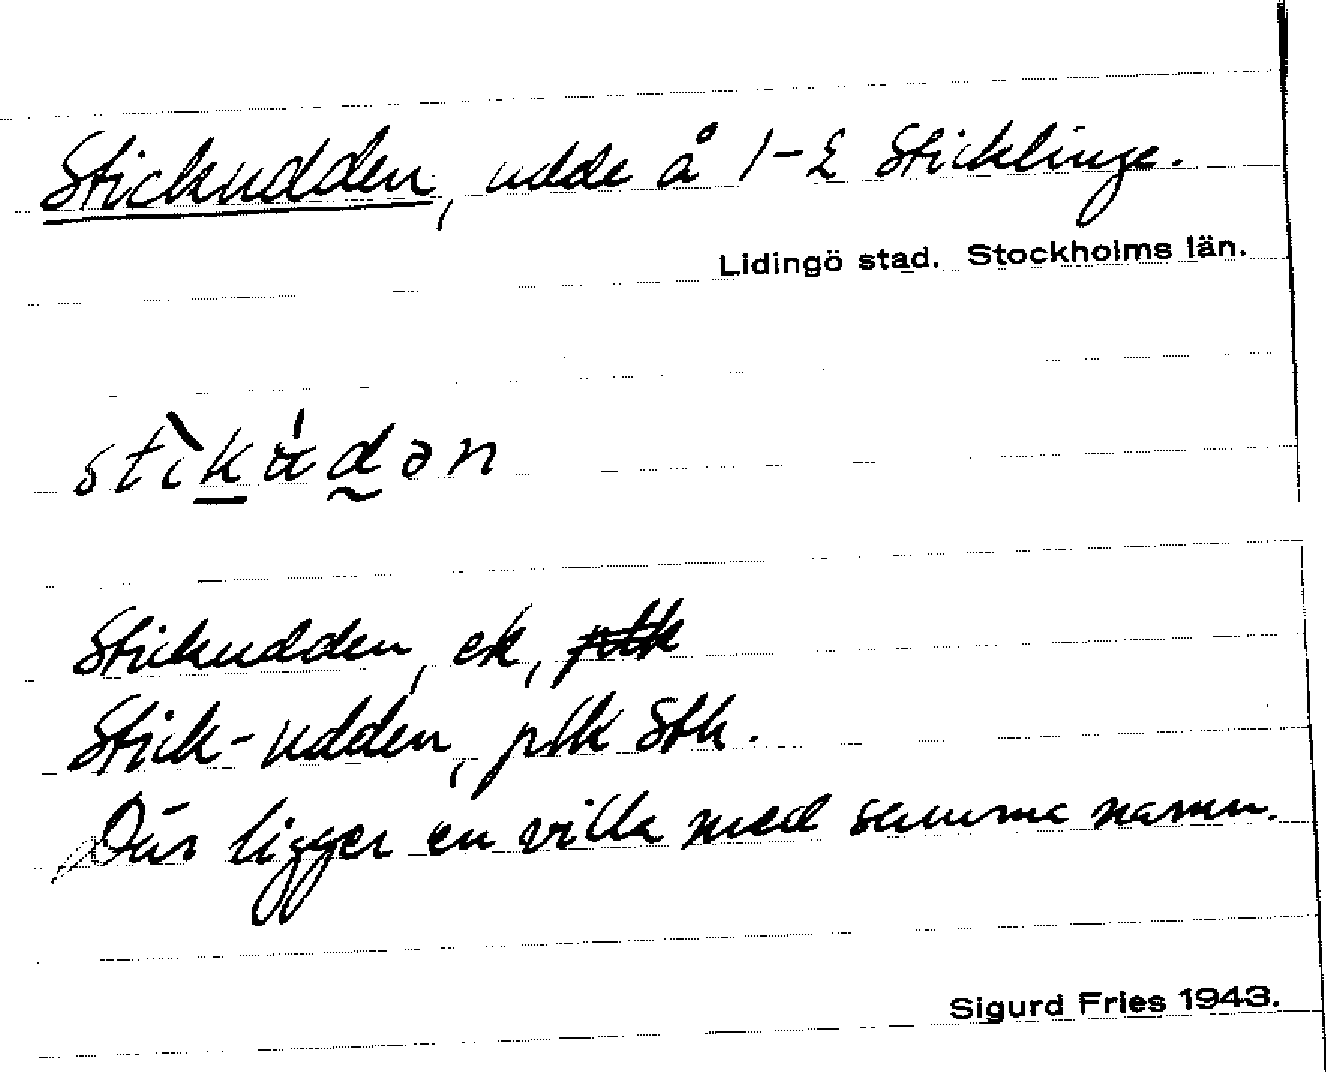 Stickudden, udde å 1-2 Sticklinge.
Lidingö stad. Stockholms län.
stìkɯ́dən
Stickudden, ek,
Stick-udden, ptk Stk.
Där ligger en villa med samma namn.
Sigurd Fries 1943.